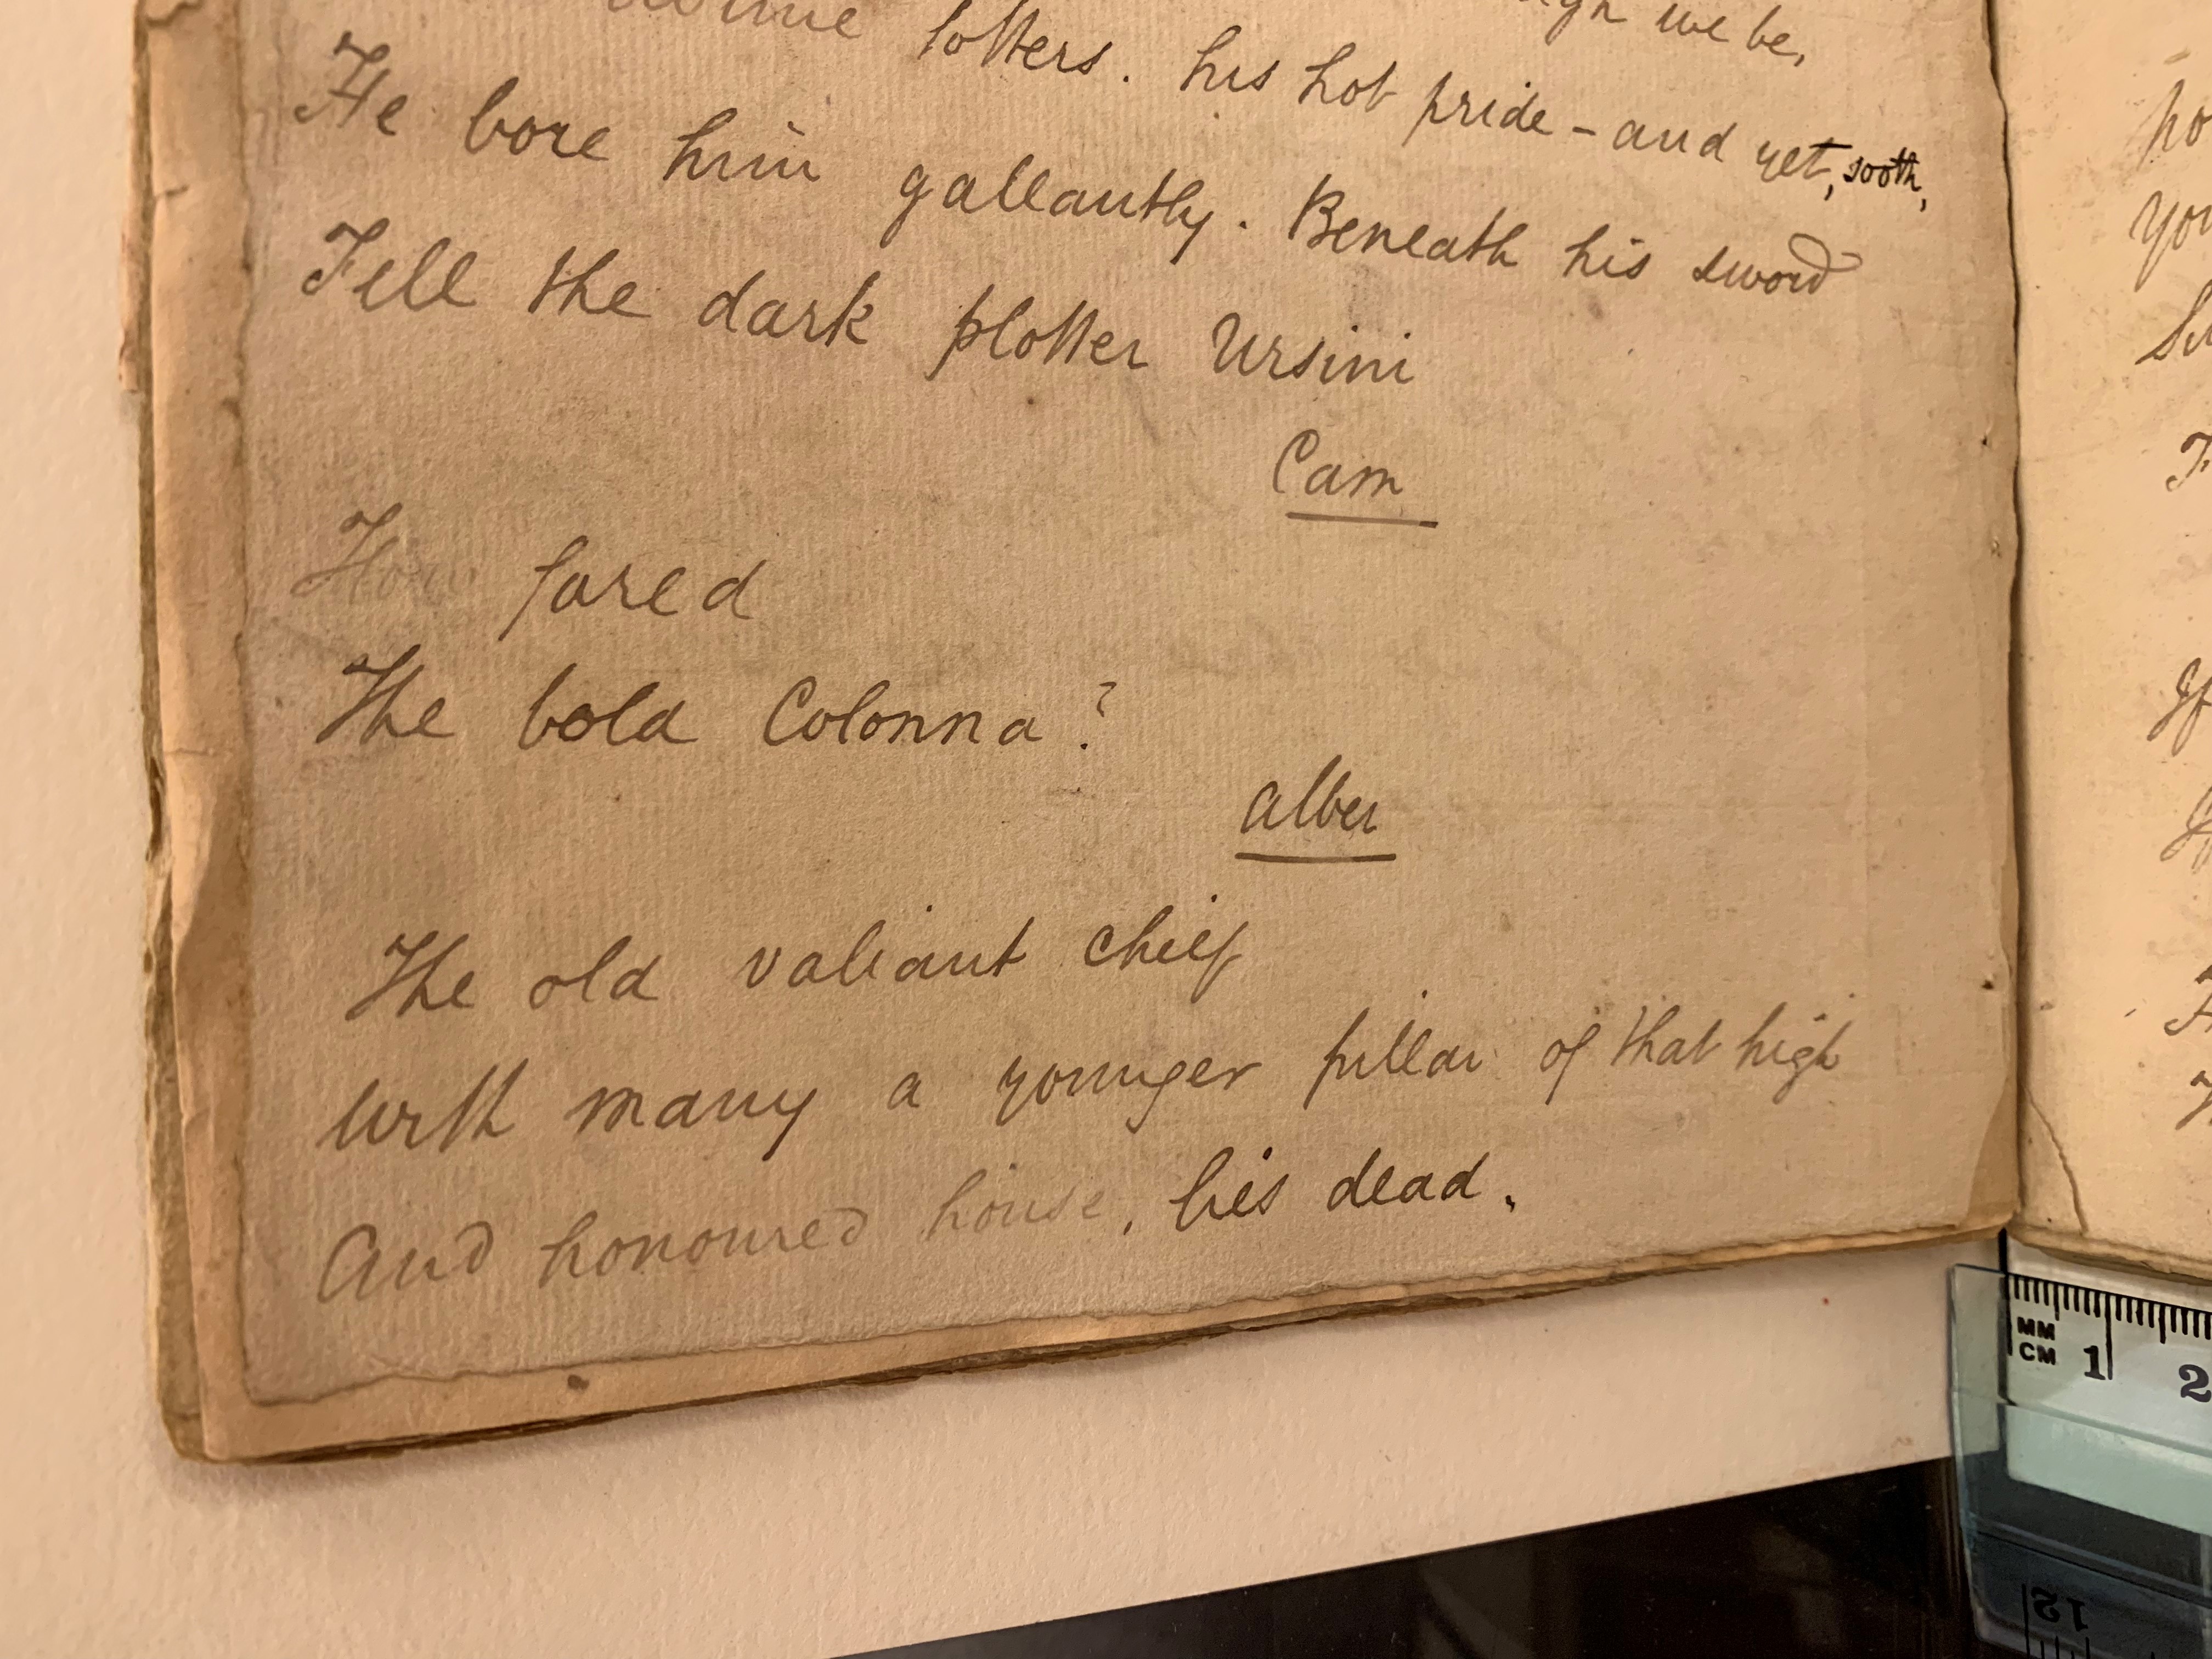 we be,
totters. his hot pride - and yet, sooth,
He bore him gallantly. Beneath his sword
Fell the dark plotter Ursini
Cam
How fared
The bold Colonna?
Alber
The old valiant chief
With many a younger pillar of that high
And honoured house, lies dead.
MM
CM 1 2
12